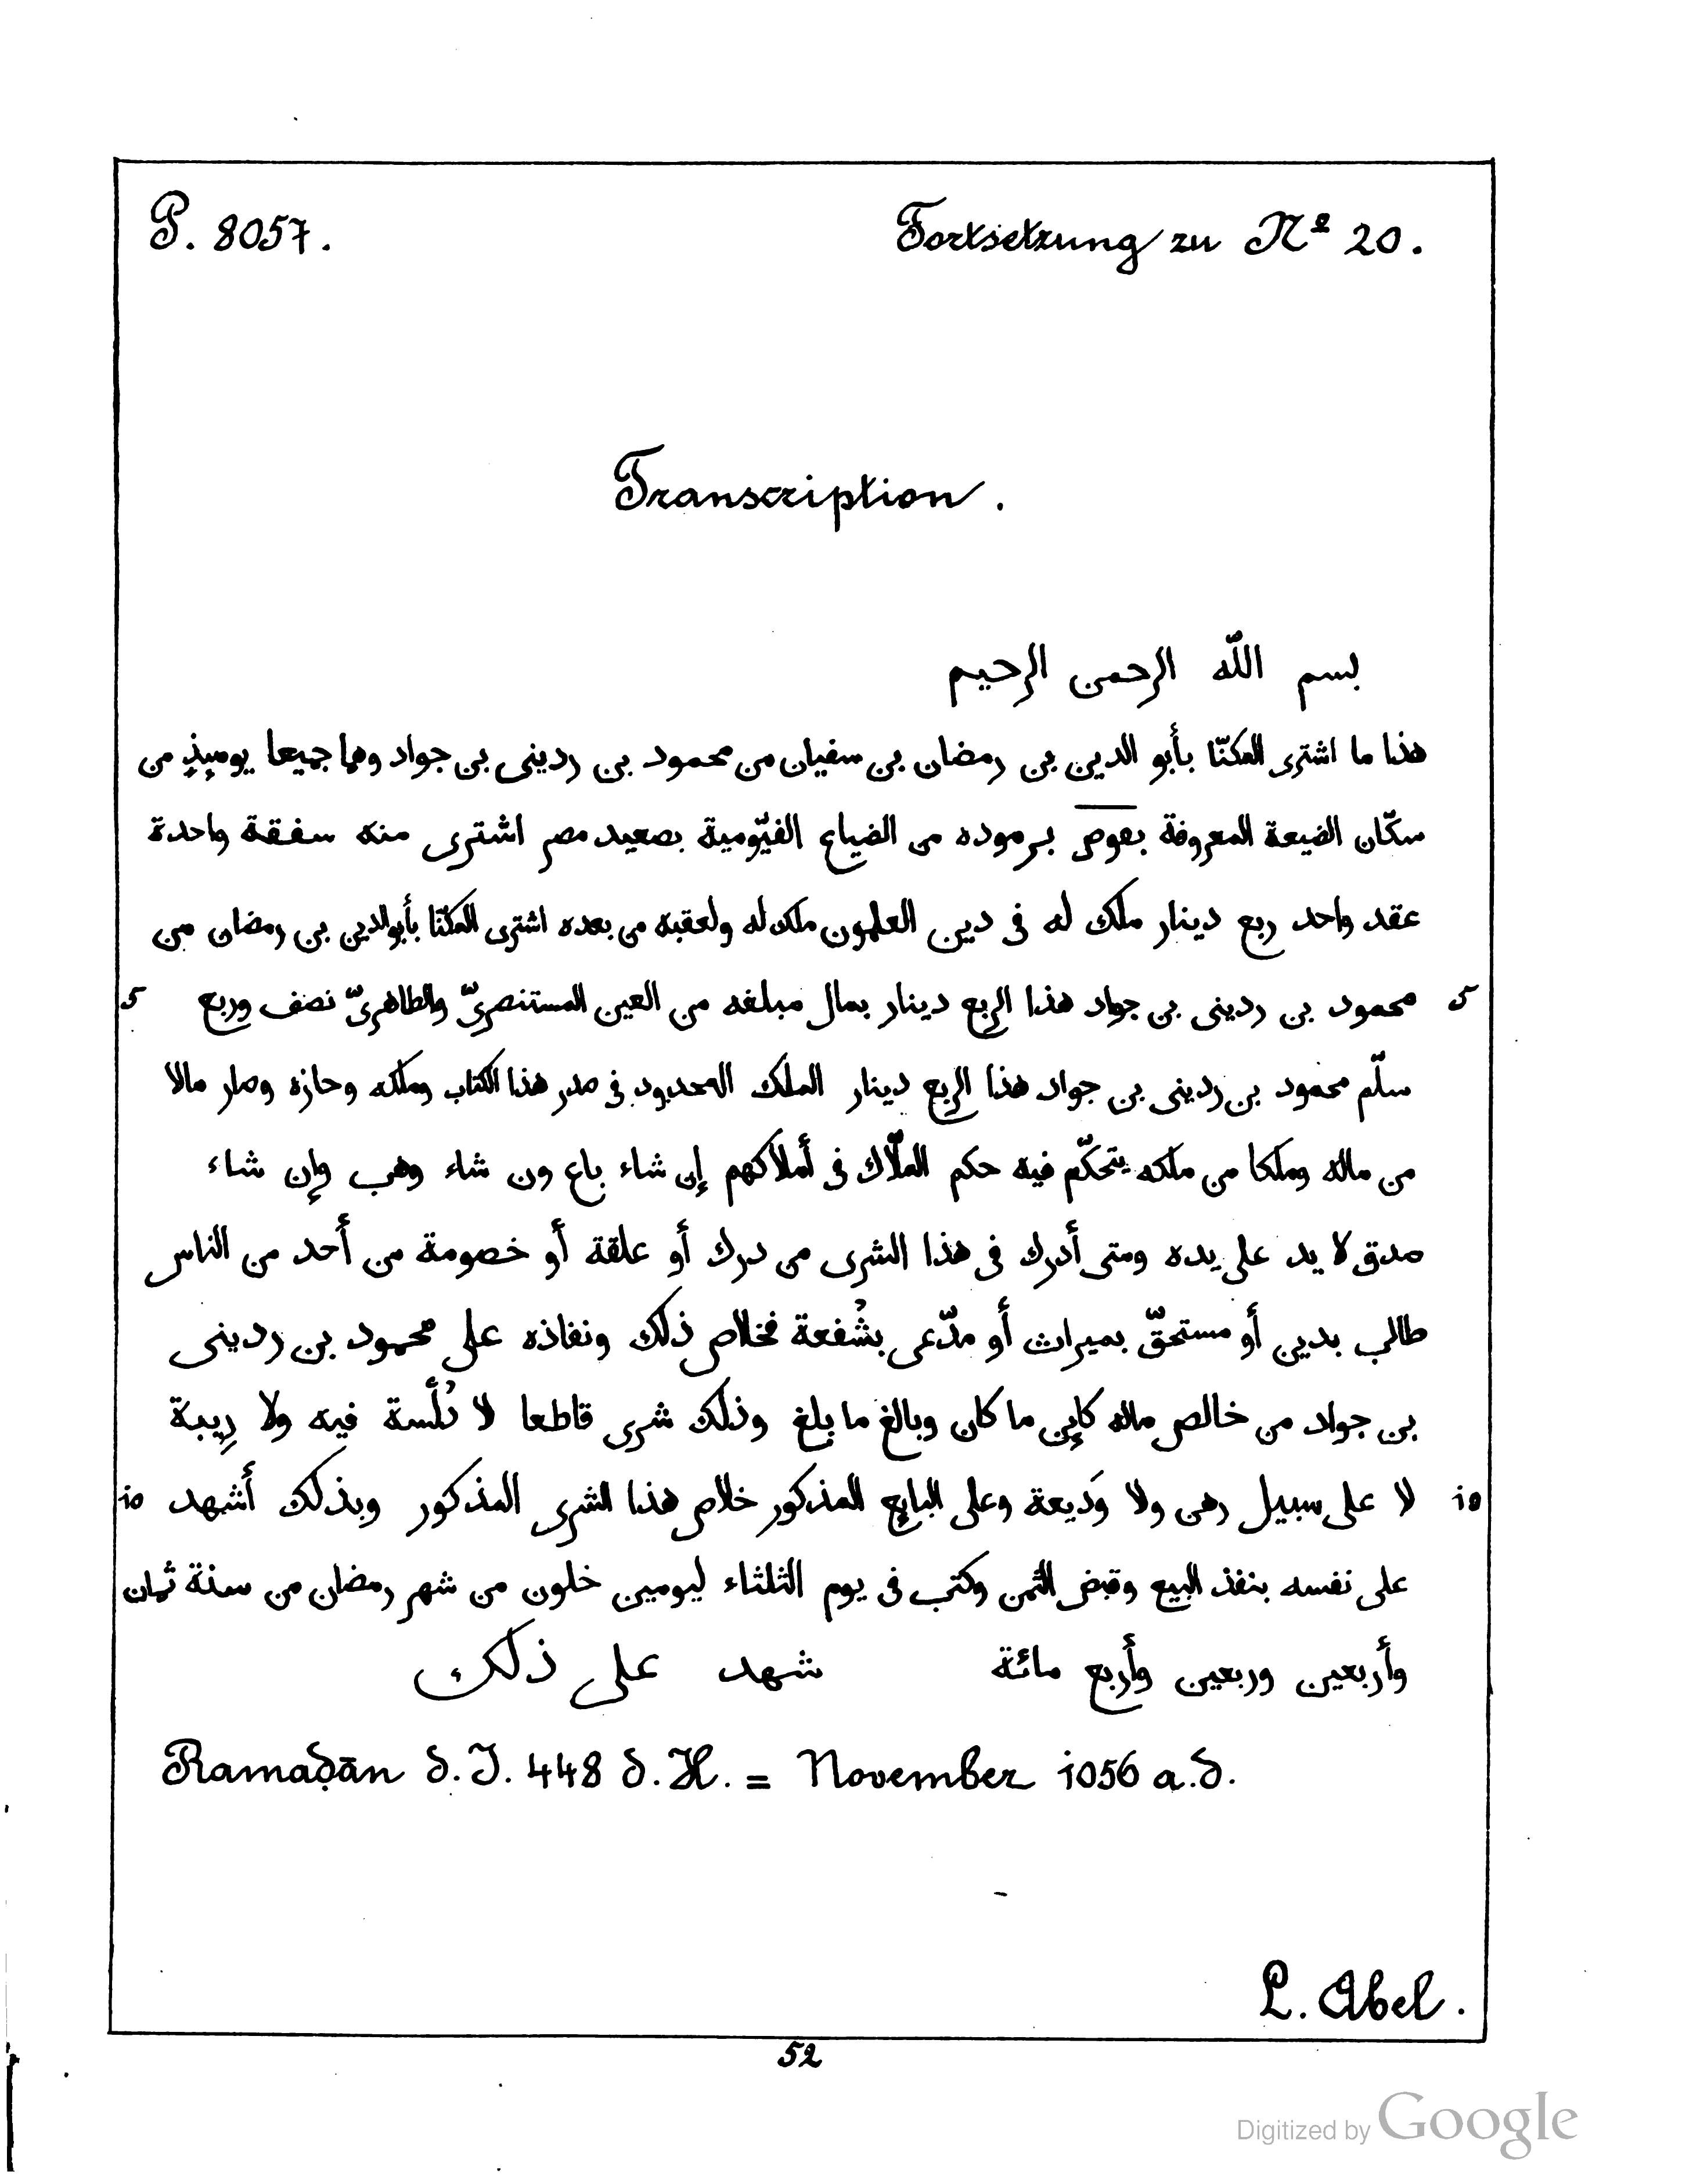 P. 8057.
Fortsetzung zu Nº 20.
Transcription.
بسم اللّه الرحمن الرحيم
هذا ما اشترى المكنّا بأبو الدين بن رمضان بن سفيان من محمود بن ردينى بن جواد وهما جميعا يوميذٍ من
سكّان الضيعة المعروفة بعوص برموده من الضياع الفيّومية بصعيد مصر اشترى منه سفقة واحدة
عقد واحد ربع دينار ملك له فى دين العلمون ملك له ولعقبه من بعده اشترى المكنّا بأبو الدين بن رمضان من
5 محمود بن ردينى بن جواد هذا الربع دينار بمال مبلغه من العين المستنصرىّ والطاهرىّ نصف وربع 5
سلّم محمود بن ردينى بن جواد هذا الربع دينار الملك المحدود فى صدر هذا الكتاب وملكه وحازه وصار مالا
من ماله وملكا من ملكه يتحكّم فيه حكم الملّاك فى أملاكهم إن شاء باع ون شاء وهب وإن شاء
صدق لا يد على يده ومتى أدرك فى هذا الشرى من درك أو علقة أو خصومة من أحد من الناس
طالب بدين أو مستحقّ بميراث أو مدّعى بشُفعة فخلاص ذلك ونفاذه على محمود بن ردينى
بن جواد من خالص ماله كاين ما كان وبالغ ما بلغ وذلك شرى قاطعا لا دُلْسة فيه ولا رِيبة
10 لا على سبيل رهن ولا وَديعة وعلى البايع المذكور خلاص هذا الشرى المذكور وبذلك أشهد 10
على نفسه بنفذ البيع وقبض الثمن وكتب فى يوم الثلثاء ليومين خلون من شهر رمضان من سنة ثمان
وأربعين وربعين وأربع مائة شهد على ذلك
Ramaḍān d. J. 448 d. H. = November 1056 a.d.
L. Abel.
52
Digitized by Google